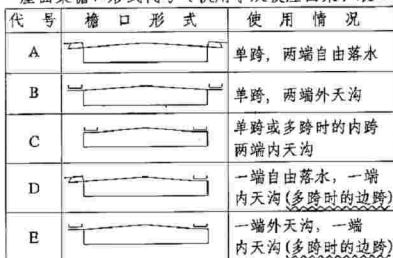 代号 檐口形式 使用情况
A 单跨，两端自由落水
B 单跨，两端外天沟
C 单跨或多跨时的内跨
两端内天沟
D 一端自由落水，一端
内天沟(多跨时的边跨)
E 一端外天沟，一端
内天沟(多跨时的边跨)